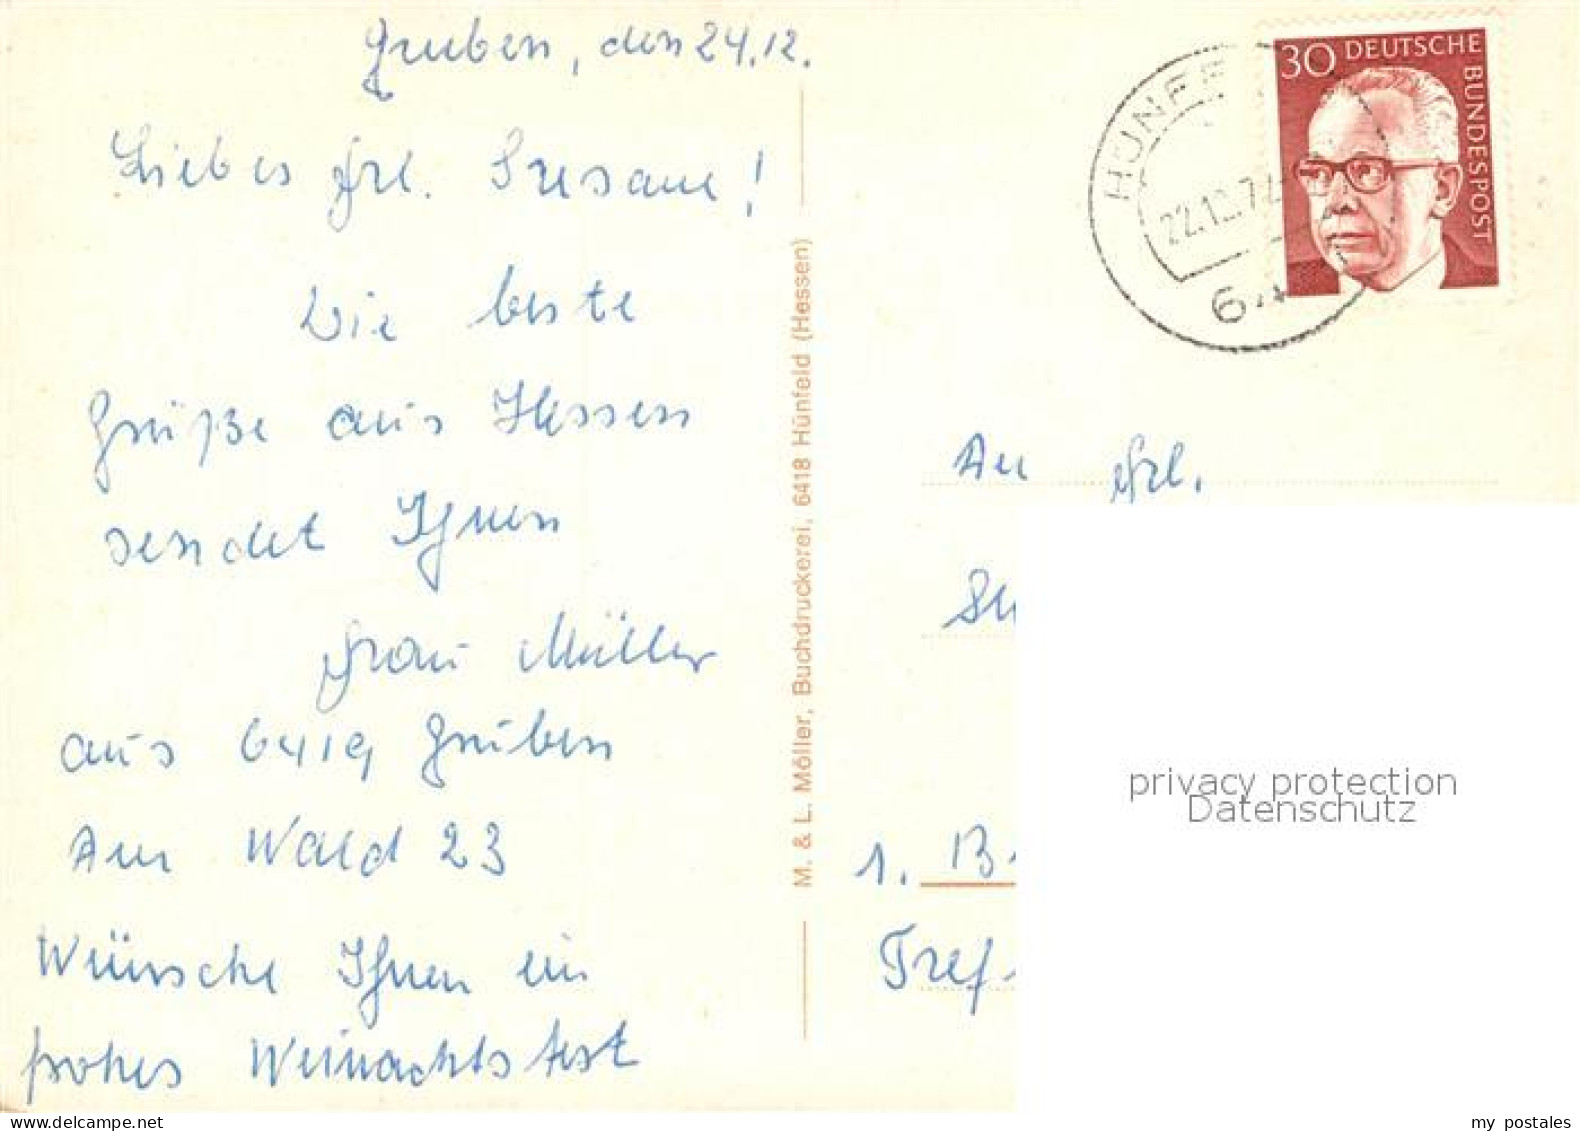 Gruben, den 24.12.
Liebes Frl. Susane!
Die beste
Grüße aus Hessen
sendet Ihnen
Frau Müller
aus 6419 Gruben
Am Wald 23
Wünsche Ihnen ein
frohes Weinachtsfest
M. & L. Möller, Buchdruckerei, 6418 Hünfeld (Hessen)
30 DEUTSCHE
BUNDESPOST
HÜNFE
22.12.72
64
An Frl.
Su
1. B
Tref
privacy protection
Datenschutz
my postales